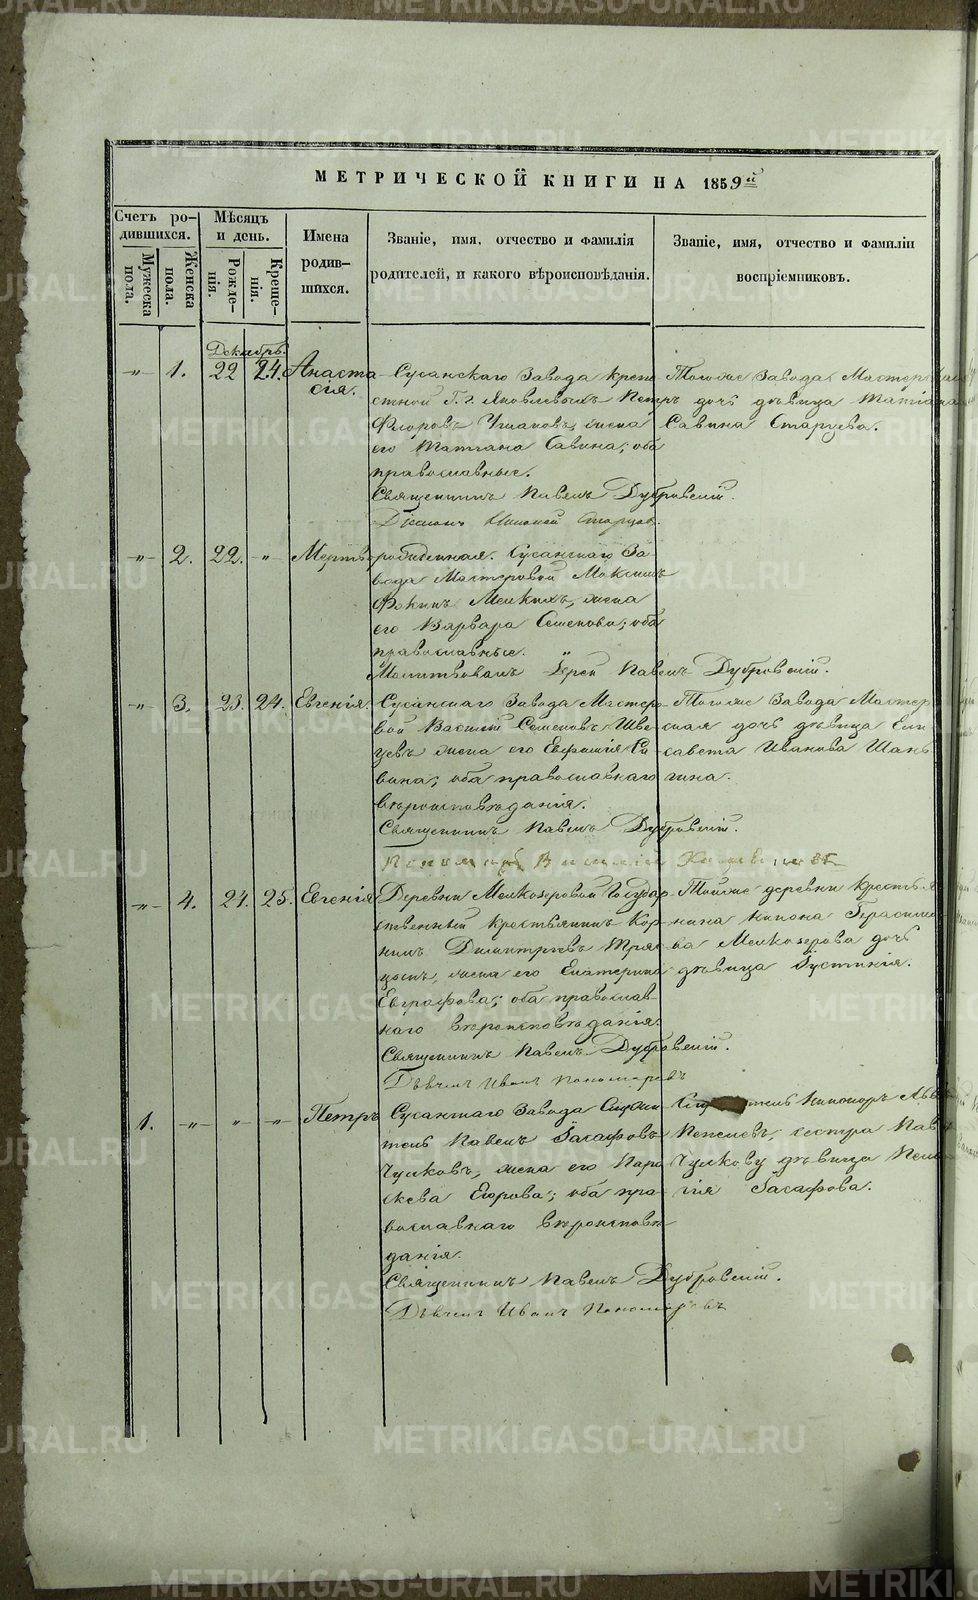 МЕТРИЧЕСКОЙ КНИГИ НА 1859й
Счетъ ро-
дившихся.
Мужеска
пола.
Женска
пола.
Мѣсяцъ
и день.
Рожде-
нія.
Креще-
нія.
Имена
родив-
шихся.
Званіе, имя, отчество и фамилія
родителей, и какого вѣроисповѣданія.
Званіе, имя, отчество и фамиліи
воспріемниковъ.
Декабрь.
-"- 1. 22 24. Анаста
сія.
Сусанскаго Завода крепо
стной Г.г. Яковлевыхъ Петръ
Флоровъ жена
его Татіана Савина; оба
православные.
Священникъ Павелъ Дубровскій.
Діаконъ Старцов.
Тогоже Завода Мастер
дочь дѣвица Татіана
Савина Старцева.
-"- 2. 22. -"- Мертво
рожденная. Сусанскаго За
вода Мастеровой Максимъ
Фокинъ Мелкихъ, жена
его Варвара Семенова; оба
православные.
Молитвовалъ Іерей Павелъ Дубровскій.
-"- 3. 23. 24. Евгенія.
Сусанскаго Завода Мастеро-
вой Василій Семеновъ Шве
цевъ жена его Евфимія Са
вина; оба православнаго
вѣроисповѣданія.
Священникъ Павелъ Дубровскій.
Тогоже Завода Мастер
ская дочь дѣвица Ели
савета Иванова Шань
гина.
-"- 4. 24. 25. Евгенія
Деревни Мелкозеровой Государ
ственный крестьянинъ Кор
нилъ Димитріевъ Тряс
цынъ, жена его Екатерина
Евграфова; оба православ-
наго вѣроисповѣданія.
Священникъ Павелъ Дубровскій.
Дьячекъ Иванъ Пономаревъ
Тойже деревни крестья
нина Никона Герасимо
ва Мелкозерова дочь
дѣвица Іустинія.
1. -"- " -"- Петръ
Сусанскаго Завода Служи
тель Павелъ Іасафовъ
Чулковъ, жена его Пара
скева Егорова; оба пра
вославнаго вѣроисповѣ
данія.
Священникъ Павелъ Дубровскій.
Дьячекъ Иванъ Пономаревъ
Никаноръ Льво
Пепелевъ, сестра Пав
Чулкову дѣвица Пела
гія Іасафова.
METRIKI.GASO-URAL.RU